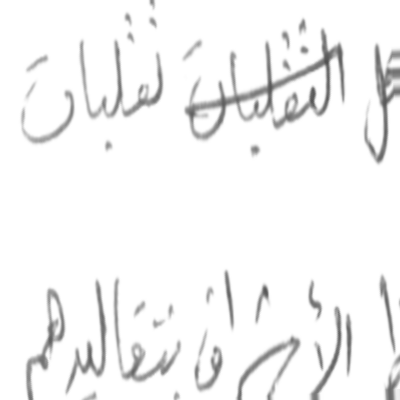 التقلبات تقلبات
الأشراف بتقاليدهم